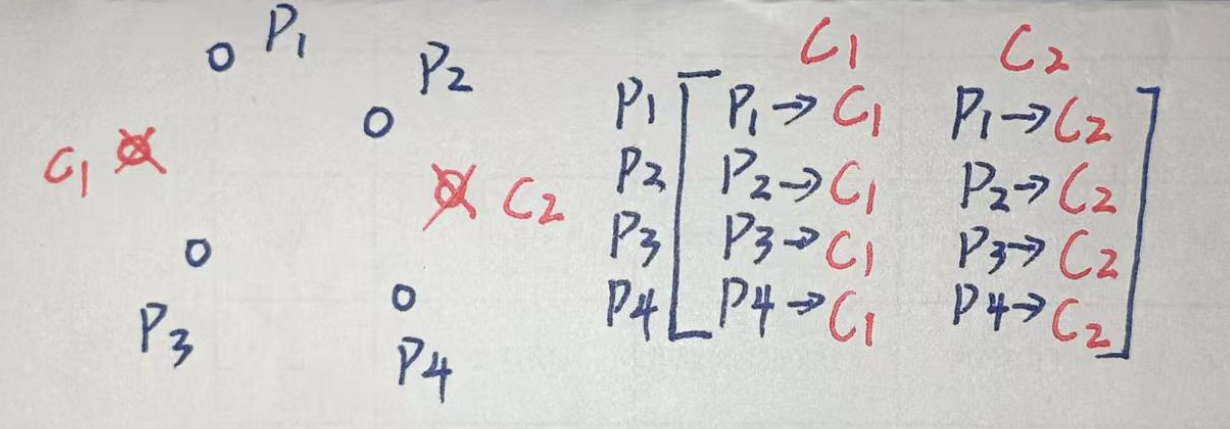 P₁
P₂
C₁
C₂
P₃
P₄
C₁ C₂
P₁ P₁→C₁ P₁→C₂
P₂ P₂→C₁ P₂→C₂
P₃ P₃→C₁ P₃→C₂
P₄ P₄→C₁ P₄→C₂